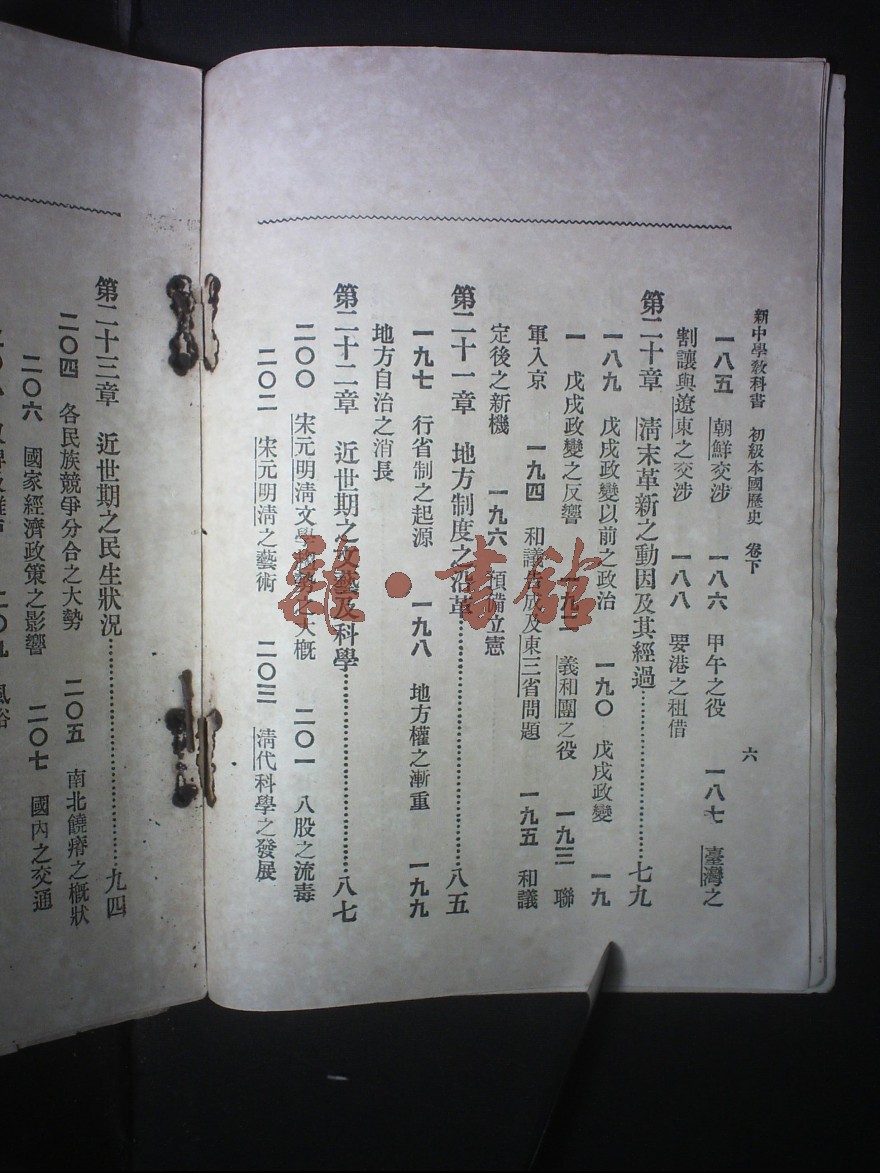 新中學教科書　初級本國歷史　卷下　六
一八五　朝鮮交涉　一八六　甲午之役　一八七　臺灣之
割讓與遼東之交涉　一八八　要港之租借
第二十章　清末革新之動因及其經過……七九
一八九　戊戌政變以前之政治　一九〇　戊戌政變　一九
一　戊戌政變之反響　一九二　義和團之役　一九三　聯
軍入京　一九四　和議告成及東三省問題　一九五　和議
定後之新機　一九六　預備立憲
第二十一章　地方制度之沿革……八五
一九七　行省制之起源　一九八　地方權之漸重　一九九
地方自治之消長
第二十二章　近世期之文藝及科學……八七
二〇〇　宋元明清文學之大概　二〇一　八股之流毒
二〇二　宋元明清之藝術　二〇三　清代科學之發展
第二十三章　近世期之民生狀況……九四
二〇四　各民族競爭分合之大勢　二〇五　南北饒瘠之概狀
二〇六　國家經濟政策之影響　二〇七　國內之交通
二〇九　風俗
書館